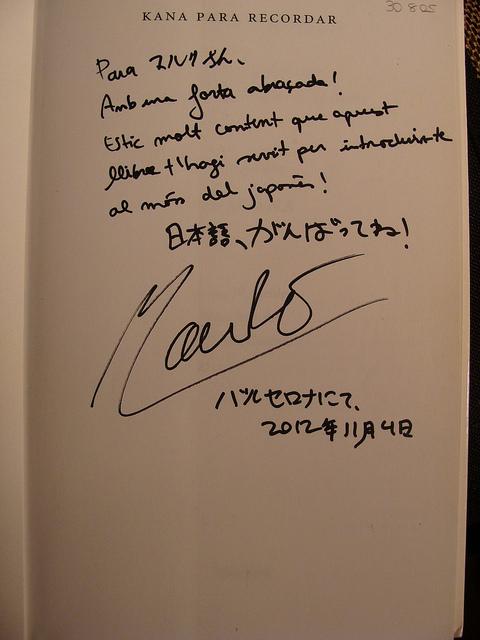 30 805
KANA PARA RECORDAR
Para エルクさん、
Amb una forta abraçada!
Estic molt content que aquest
llibre t'hagi servit per introduir-te
al món del japonès!
日本語、がんばってね!
バルセロナにて、
2012年11月4日